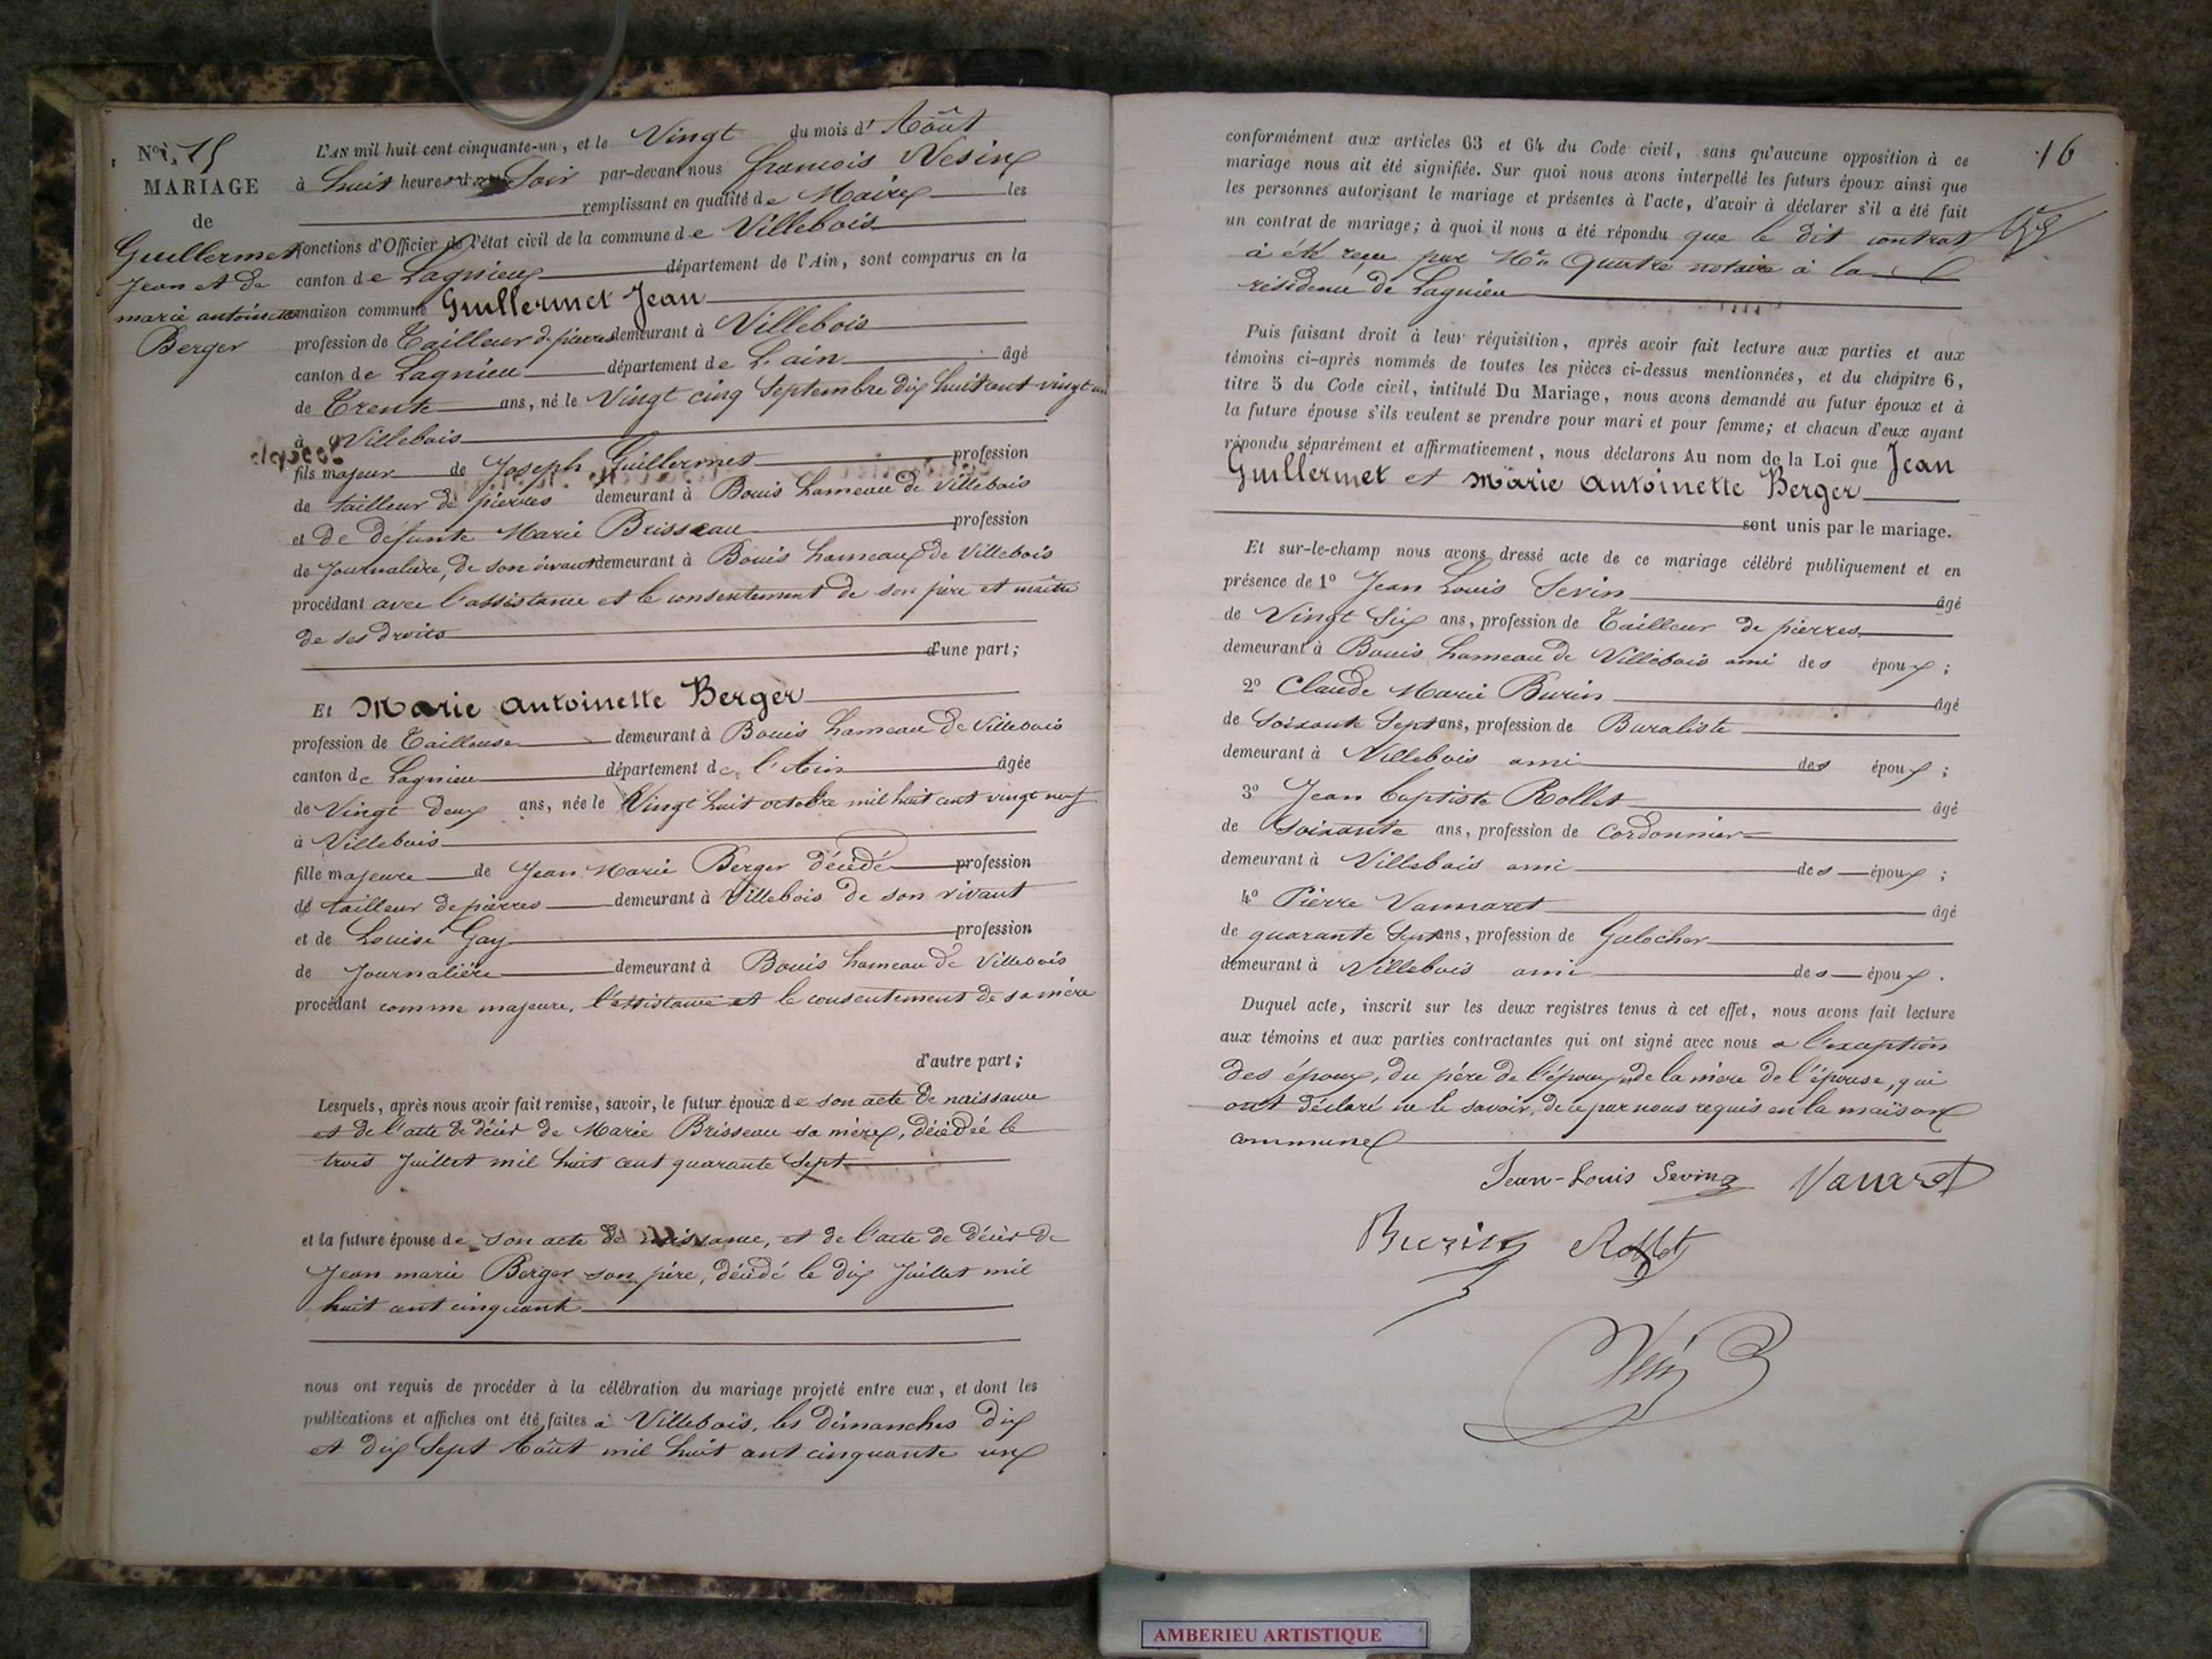 N° 15
MARIAGE
de
Guillermet
Jean et de
marie antoinette
Berger
L'AN mil huit cent cinquante-un, et le Vingt du mois d'Août
à huit heures du Soir par-devant nous francois Vesin
remplissant en qualité de Maire les
fonctions d'Officier de l'état civil de la commune de Villebois
canton de Lagnieu département de l'Ain, sont comparus en la
maison commune Guillermet Jean
profession de Tailleur de pierres demeurant à Villebois
canton de Lagnieu département de L'ain âgé
de Trente ans, né le Vingt cinq Septembre dix huit cent vingt un
à Villebois
fils majeur de Joseph Guillermet profession
de tailleur de pierres demeurant à Bouis hameau de Villebois
et de défunte Marie Brisseau profession
de Journalière, de son vivant demeurant à Bouis hameau de Villebois
procédant avec l'assistance et le consentement de son père et maître
de ses droits
d'une part;
Et Marie antoinette Berger
profession de Tailleuse demeurant à Bouis hameau de Villebois
canton de Lagnieu département de l'Ain âgée
de Vingt deux ans, née le Vingt huit octobre mil huit cent vingt neuf
à Villebois
fille majeure de Jean Marie Berger décédé profession
de tailleur de pierres demeurant à Villebois de son vivant
et de Louise Gay profession
de Journalière demeurant à Bouis hameau de Villebois
procédant comme majeure, l'assistance et le consentement de sa mère
d'autre part;
Lesquels, après nous avoir fait remise, savoir, le futur époux de son acte de naissance
et de l'acte de décès de Marie Brisseau sa mère, décédée le
trois Juillet mil huit cent quarante Sept
et la future épouse de son acte de naissance, et de l'acte de décès de
Jean marie Berger son père, décédé le dix Juillet mil
huit cent cinquante
nous ont requis de procéder à la célébration du mariage projeté entre eux, et dont les
publications et affiches ont été faites à Villebois, les dimanches dix
et dix Sept Août mil huit cent cinquante un
16
conformément aux articles 63 et 64 du Code civil, sans qu'aucune opposition à ce
mariage nous ait été signifiée. Sur quoi nous avons interpellé les futurs époux ainsi que
les personnes autorisant le mariage et présentes à l'acte, d'avoir à déclarer s'il a été fait
un contrat de mariage; à quoi il nous a été répondu que le dit contrat
à été reçu par Me Quatre notaire à la
résidence de Lagnieu
Puis faisant droit à leur réquisition, après avoir fait lecture aux parties et aux
témoins ci-après nommés de toutes les pièces ci-dessus mentionnées, et du chapitre 6,
titre 5 du Code civil, intitulé Du Mariage, nous avons demandé au futur époux et à
la future épouse s'ils veulent se prendre pour mari et pour femme; et chacun d'eux ayant
répondu séparément et affirmativement, nous déclarons Au nom de la Loi que Jean
Guillermet et marie antoinette Berger
sont unis par le mariage.
Et sur-le-champ nous avons dressé acte de ce mariage célébré publiquement et en
présence de 1° Jean Louis Sevin âgé
de Vingt Six ans, profession de Tailleur de pierres
demeurant à Bouis hameau de Villebois ami des époux;
2° Claude Marie Burin âgé
de Soixante Sept ans, profession de Buraliste
demeurant à Villebois ami des époux;
3° Jean baptiste Rollet âgé
de Soixante ans, profession de Cordonnier
demeurant à Villebois ami des époux;
4° Pierre Vannaret âgé
de quarante Sept ans, profession de Galocher
demeurant à Villebois ami des époux.
Duquel acte, inscrit sur les deux registres tenus à cet effet, nous avons fait lecture
aux témoins et aux parties contractantes qui ont signé avec nous a l'exception
des époux, du père de l'époux, de la mère de l'épouse, qui
ont déclaré ne le savoir, de ce par nous requis en la maison
commune
Jean-Louis Sevin Vanaret
Burin Rollet
Vesin
AMBERIEU ARTISTIQUE